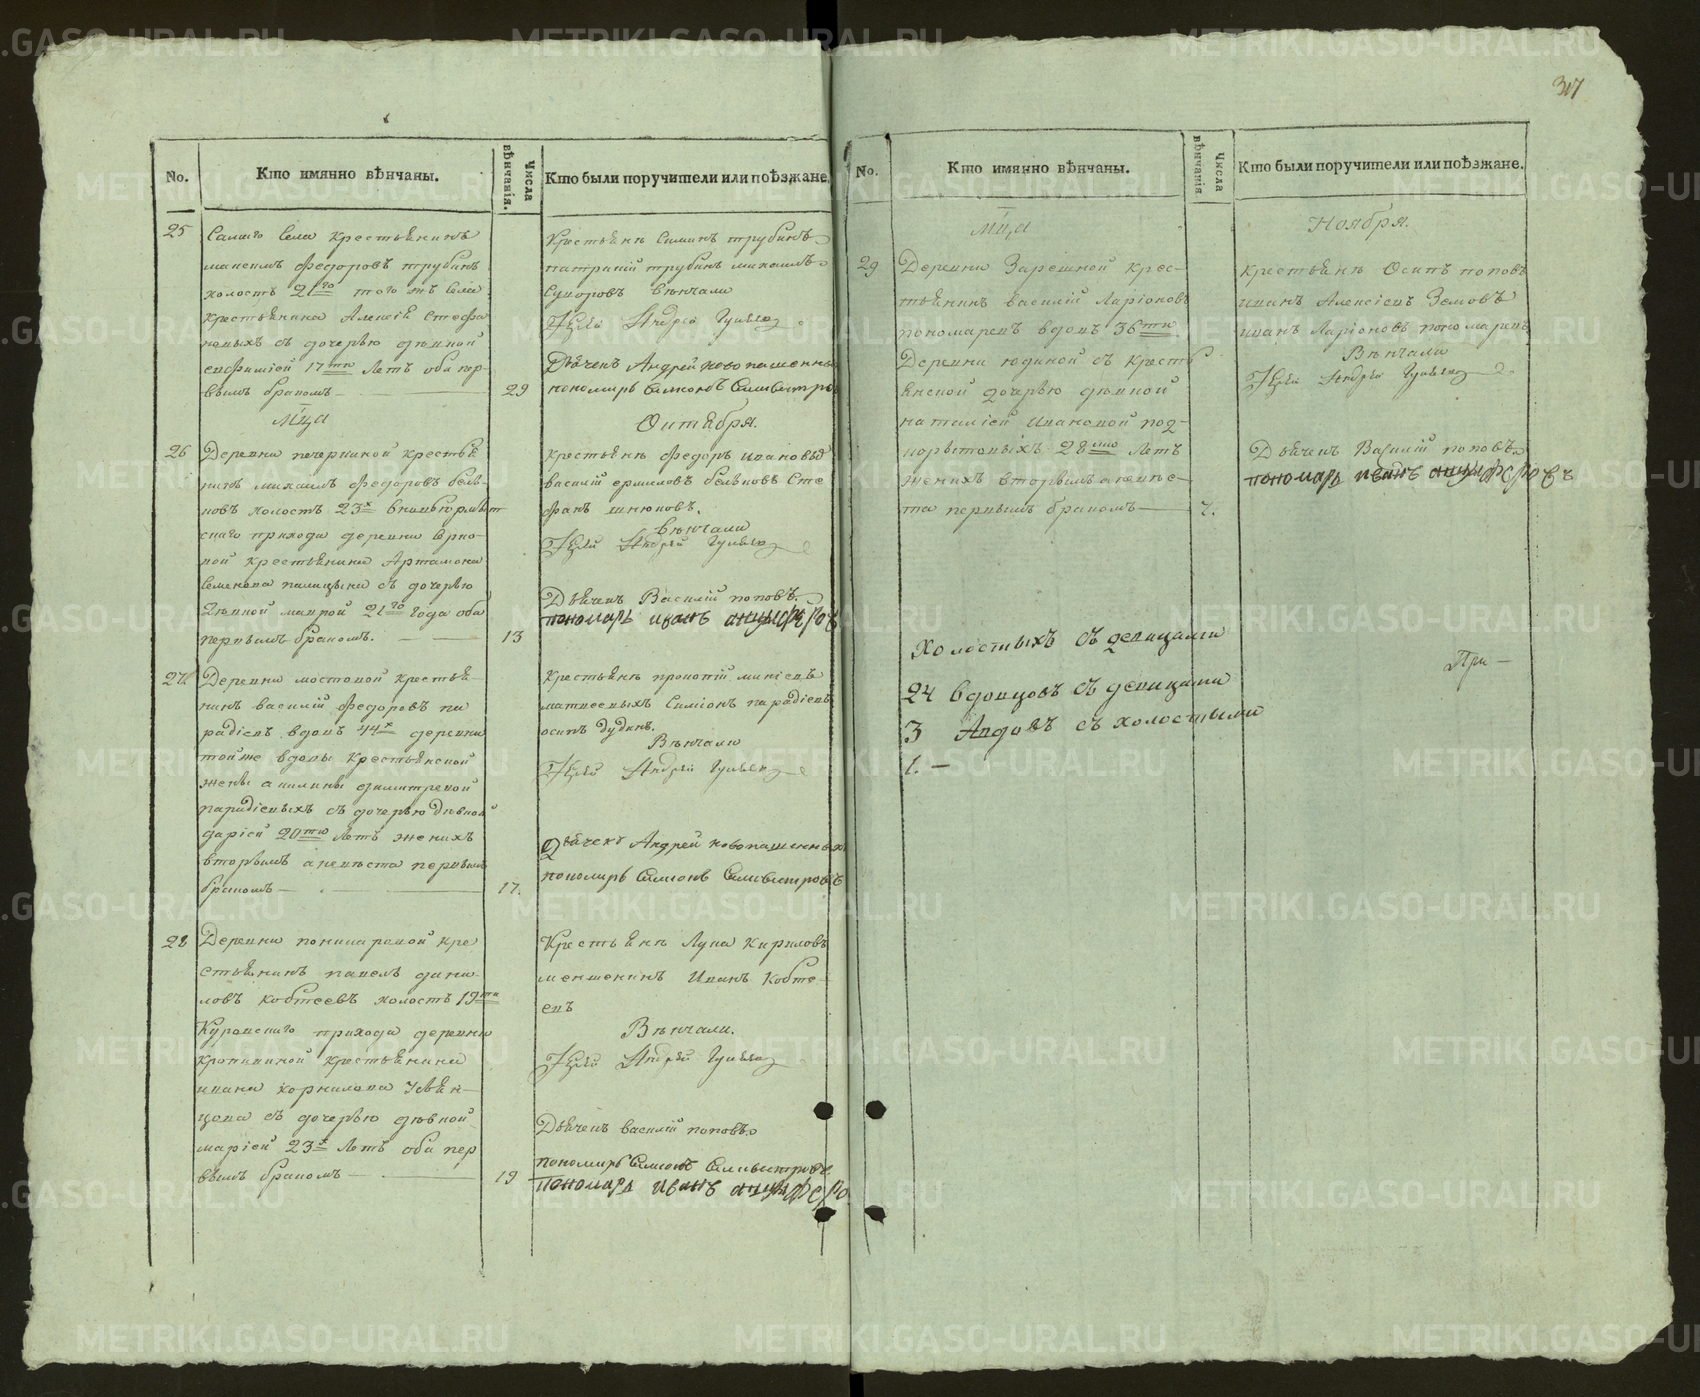 317
No.
Кто имянно вѣнчаны.
Числа вѣнчанія.
Кто были поручители или поѣзжане.
25
Самаго Села крестьянинъ
максимъ Федоровъ трубинъ
холостъ 21го того жъ Села
крестьянина Алексѣя Стефа
новыхъ съ дочерью дѣвкой
евфиміей 17ти Летъ оба пер-
вымъ бракомъ
29
Крестьянѣ Симанъ трубинъ
патракій трубинъ михаилъ
Суворовъ Вѣнчали
Іерей Андрей
Дьячекъ Андрей новопашенны
пономарь Симеонъ Селивестро
Мца
Октября.
26
Деревни печеркиной крестья
нинъ михаилъ Федоровъ бель
ковъ холостъ 23х
скаго прихода деревни
вой крестьянина Артамона
Семенова палицына съ дочерью
дѣвкой маврой 21го года оба
первымъ бракомъ.
13
крестьянѣ Федоръ ивановъ
василій ермиловъ бельковъ Сте
фанъ шнюковъ.
вѣнчали
Іерей Андрей
Дьячекъ Василій поповъ
пономарь иванъ анцыферовъ
27.
Деревни мостовой крестья-
нинъ василій Федоровъ па
радѣевъ вдовъ 44х деревни
тойже вдовы крестьянской
жены акилины димитревой
парадѣевыхъ съ дочерью дѣвкой
даріей 20ти Летъ женихъ
вторымъ а невѣста первымъ
бракомъ
17.
крестьянѣ прокопій
матвеевыхъ Симіонъ парадѣевъ
осипъ дудинъ.
Вѣнчали
Іерей Андрей
Дьячекъ Андрей новопашенныхъ
пономарь Симеонъ Селивестровъ
28
Деревни кре
стьянинъ павелъ дани
ловъ кобтеевъ холостъ 19ти
прихода деревни
кропивиной крестьянина
ивана корнилова Увѣн-
цова съ дочерью дѣвкой
маріей 23х Летъ оба пер
вымъ бракомъ
19
Крестьянѣ Лука Кириловъ
меншенинъ Иванъ Кобте-
евъ
Вѣнчали.
Іерей Андрей
Дьячекъ василій поповъ
пономарь Симеонъ Селивестровъ
пономарь иванъ анцыферо
No.
Кто имянно вѣнчаны.
Числа вѣнчанія
Кто были поручители или поѣзжане.
Мца
Ноября.
29
Деревни Зарешной крес-
тьянинъ василій Ларіоновъ
пономаревъ вдовъ 36ти
Деревни юдиной съ кресть
янской дочерью дѣвкой
наталіей ивановой под-
корытовыхъ 28ми Летъ
женихъ вторымъ а невѣс-
та первымъ бракомъ
7.
крестьянѣ Осипъ поповъ
иванъ Алексѣевъ Земовъ
иванъ Ларіоновъ пономаревъ
Вѣнчали
Іерей Андрей
Дьячекъ Василій поповъ
пономарь иванъ анцыферовъ
Холостыхъ съ девицами
24 вдовцовъ съ девицами
3 Авдовъ съ холостыми
1. —
При —